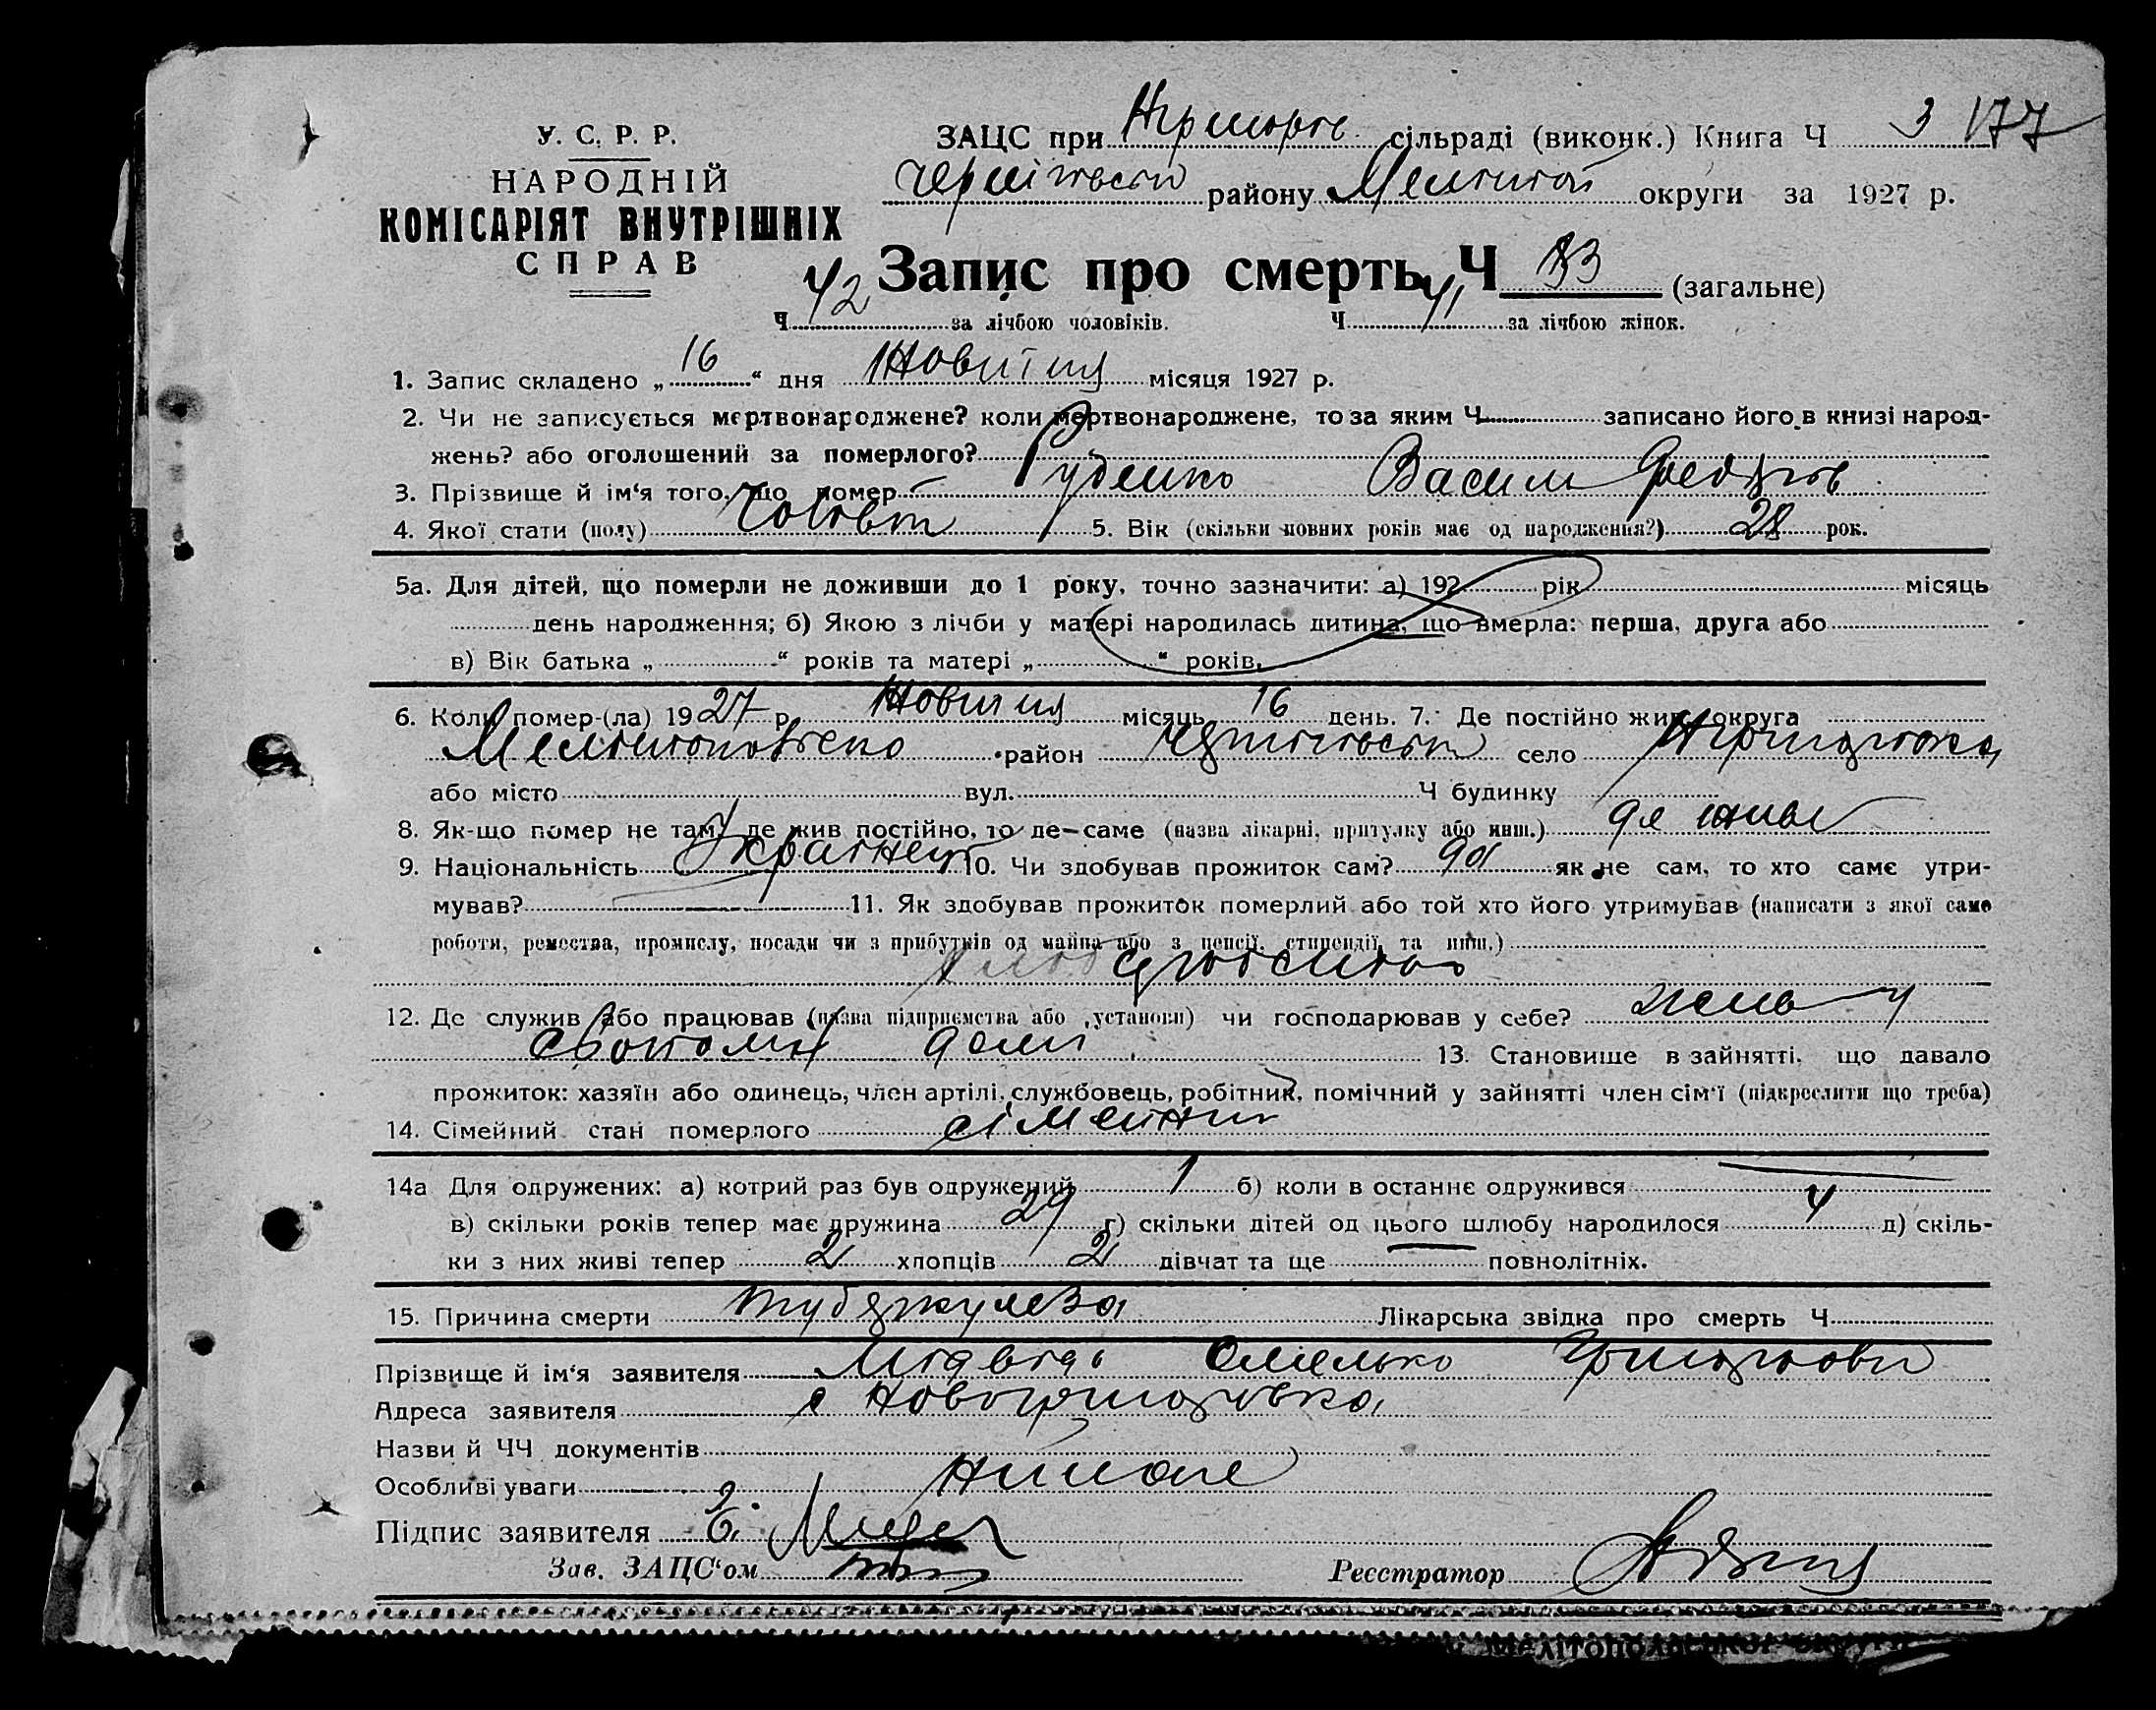 У. С. Р. Р.
НАРОДНІЙ
КОМІСАРІЯТ ВНУТРІШНІХ
СПРАВ
ЗАЦС при сільраді (виконк.) Книга Ч 3 177
району Мелитоп округи за 1927 р.
Запис про смерть Ч 83 (загальне)
Ч 42 за лічбою чоловіків. Ч 41 за лічбою жінок.
1. Запис складено „ 16 “ дня Жовтня місяця 1927 р.
2. Чи не записується мертвонароджене? коли мертвонароджене, то за яким Ч записано його в книзі народ-
жень? або оголошений за померлого?
3. Прізвище й ім‘я того, що помер Руденко Васил Федоров
4. Якої стати (полу) 5. Вік (скільки повних років має од народження?) 28 рок.
5а. Для дітей, що померли не доживши до 1 року, точно зазначити: а) 192 рік місяць
день народження; б) Якою з лічби у матері народилась дитина, що вмерла: перша, друга або
в) Вік батька „ “ років та матері „ “ років.
6. Коли помер-(ла) 1927 р. місяць 16 день. 7. Де постійно жив: округа
район село
або місто вул. Ч будинку
8. Як-що помер не там, де жив постійно, то де-саме (назва лікарні, притулку або инш.) де живе
9. Національність Українец 10. Чи здобував прожиток сам? да як не сам, то хто саме утри-
мував? — 11. Як здобував прожиток померлий або той хто його утримував (написати з якої саме
роботи, ремества, промислу, посади чи з прибутків од майна або з пенсії, стипендії та инш.)
12. Де служив або працював (назва підприємства або установи) чи господарював у себе?
13. Становище в зайнятті, що давало
прожиток: хазяїн або одинець, член артілі, службовець, робітник, помічний у зайнятті член сім‘ї (підкреслити що треба)
14. Сімейний стан померлого сімейний
14а Для одружених: а) котрий раз був одружений 1 б) коли в останнє одружився —
в) скільки років тепер має дружина 29 г) скільки дітей од цього шлюбу народилося 4 д) скіль-
ки з них живі тепер 2 хлопців 2 дівчат та ще — повнолітніх.
15. Причина смерти туберкулеза Лікарська звідка про смерть Ч
Прізвище й ім‘я заявителя Омелько
Адреса заявителя с Новогригоровка
Назви й ЧЧ документів
Особливі уваги
Підпис заявителя
Зав. ЗАЦС‘ом Реєстратор